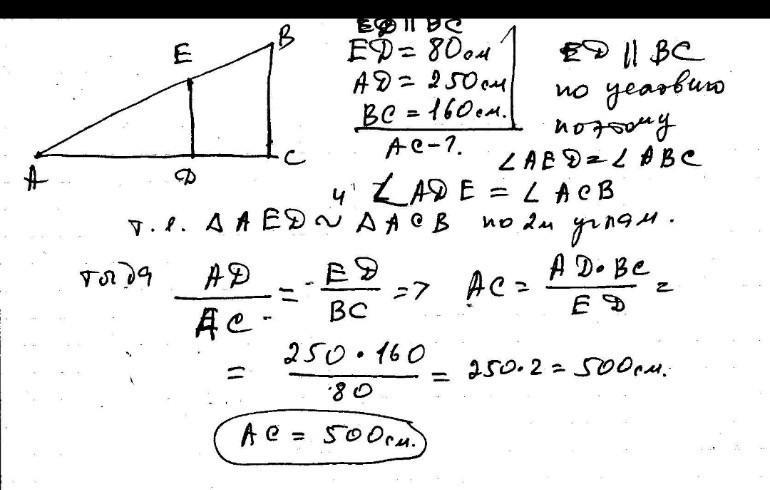 ED || BC
ED = 80 см
AD = 250 см
BC = 160 см.
AC - ?
ED || BC
по условию
поэтому
∠AED = ∠ABC
и ∠ADE = ∠ACB
т.е. ΔAED ~ ΔACB по 2м углам.
тогда AD/AC = ED/BC => AC = AD·BC/ED =
= 250·160/80 = 250·2 = 500 см.
AC = 500 см.
E
B
A
D
C